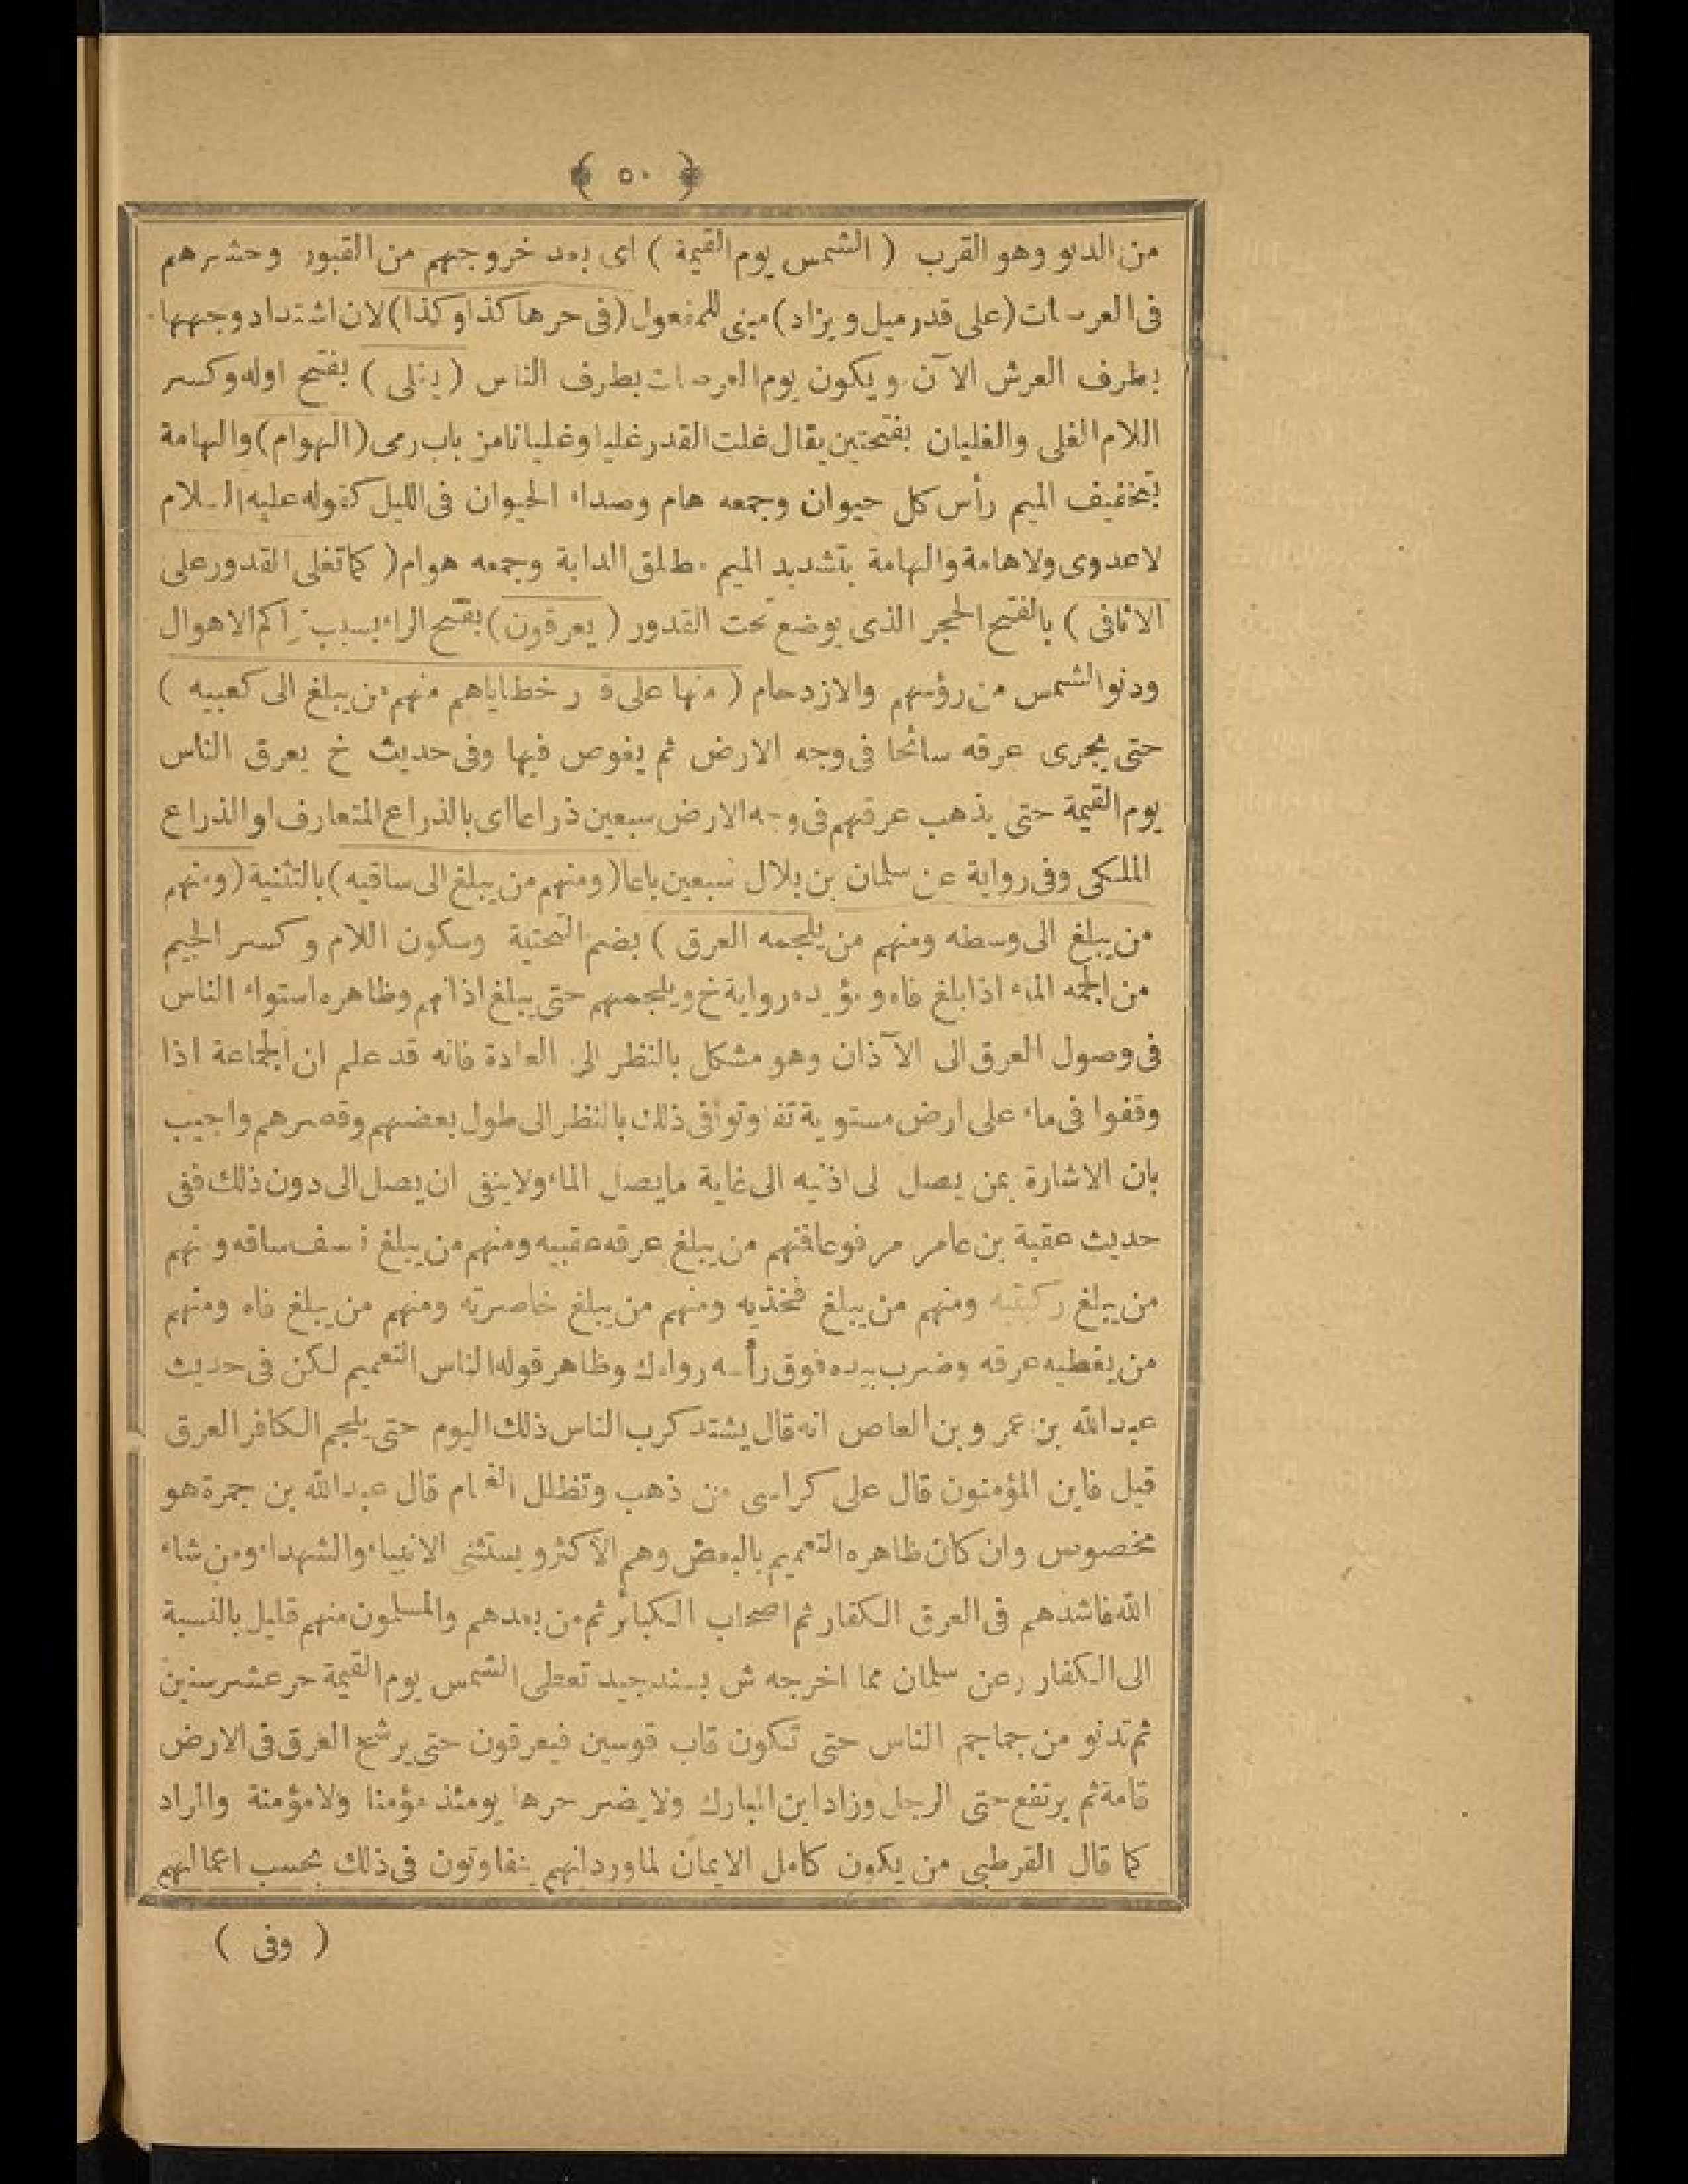 ﴿ ٥٠ ﴾
من الدنو وهو القرب ( الشمس يوم القيمة ) اى بعد خروجهم من القبور وحشرهم
فى العرصات (على قدر ميل ويزاد) مبنى للمفعول (فى حرها كذا وكذا) لان اشتداد وجهها
بطرف العرش الآن ويكون يوم العرصات بطرف الناس (يغلى) بفتح اوله وكسر
اللام الغلى والغليان بفتحتين يقال غلت القدر غليا وغليانا من باب رمى (الهوام) والهامة
بتخفيف الميم رأس كل حيوان وجمعه هام وصداء الحيوان فى الليل كقوله عليه السلام
لاعدوى ولاهامة والهامة بتشديد الميم مطلق الدابة وجمعه هوام ( كما تغلى القدور على
الاثافى ) بالفتح الحجر الذى يوضع تحت القدور ( يعرقون ) بفتح الراء بسبب تراكم الاهوال
ودنو الشمس من رؤسهم والازدحام ( منها على قدر خطاياهم منهم من يبلغ الى كعبيه )
حتى يجرى عرقه سائحا فى وجه الارض ثم يغوص فيها وفى حديث خ يعرق الناس
يوم القيمة حتى يذهب عرقهم فى وجه الارض سبعين ذراعا اى بالذراع المتعارف او الذراع
الملكى وفى رواية عن سلمان بن بلال سبعين باعا (ومنهم من يبلغ الى ساقيه) بالتثنية (ومنهم
من يبلغ الى وسطه ومنهم من يلجمه العرق ) بضم التحتية وسكون اللام وكسر الجيم
من الجمه الماء اذا بلغ فاه ويؤيده رواية خ ويلجمهم حتى يبلغ اذانهم وظاهره استواء الناس
فى وصول العرق الى الآذان وهو مشكل بالنظر الى العادة فانه قد علم ان الجماعة اذا
وقفوا فى ماء على ارض مستوية تفاوتوا فى ذلك بالنظر الى طول بعضهم وقصرهم واجيب
بان الاشارة بمن يصل لى اذنيه الى غاية مايصل الماء ولاينفى ان يصل الى دون ذلك ففى
حديث عقبة بن عامر مرفوعا فمنهم من يبلغ عرقه عقبيه ومنهم من يبلغ نصف ساقه ومنهم
من يبلغ ركبتيه ومنهم من يبلغ فخذيه ومنهم من يبلغ خاصرته ومنهم من يبلغ فاه ومنهم
من يغطيه عرقه وضرب بيده فوق رأسه رواه ك وظاهر قوله الناس التعميم لكن فى حديث
عبدالله بن عمرو بن العاص انه قال يشتد كرب الناس ذلك اليوم حتى يلجم الكافر العرق
قيل فاين المؤمنون قال على كراسى من ذهب وتظلل الغمام قال عبدالله بن جمرة هو
مخصوص وان كان ظاهره التعميم بالبعض وهم الاكثر ويستثنى الانبياء والشهداء ومن شاء
الله فاشدهم فى العرق الكفار ثم اصحاب الكبائر ثم من بعدهم والمسلمون منهم قليل بالنسبة
الى الكفار وعن سلمان مما اخرجه ش بسند جيد تعطى الشمس يوم القيمة حر عشر سنين
ثم تدنو من جماجم الناس حتى تكون قاب قوسين فيعرقون حتى يرشح العرق فى الارض
قامة ثم يرتفع حتى الرجل وزاد ابن المبارك ولايضر حرها يومئذ مؤمنا ولامؤمنة والمراد
كما قال القرطبى من يكون كامل الايمان لما ورد انهم يتفاوتون فى ذلك بحسب اعمالهم
( وفى )